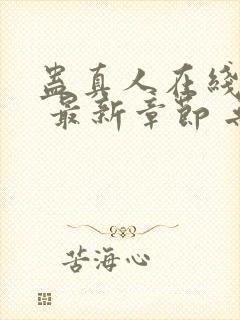 蛊真人在线
最新章节
苦海心